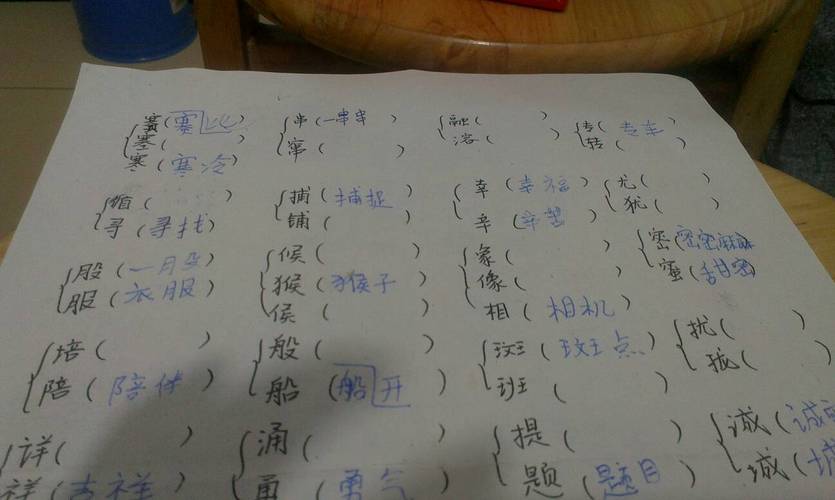 赛(赛比)
塞( )
寒(寒冷)
串(一串串)
窜( )
融( )
溶( )
专(专车)
转( )
循( )
寻(寻找)
捕(捕捉)
铺( )
幸(幸福)
辛(辛苦)
尤( )
犹( )
股(一股)
服(衣服)
候( )
猴(猴子)
侯( )
象( )
像( )
相(相机)
密(密密麻麻)
蜜(
培( )
陪(陪伴)
般( )
船(船开)
斑(斑点)
班( )
扰( )
详( )
祥(吉祥)
涌( )
勇(勇气)
提( )
题(题目)
诚(诚
城(城